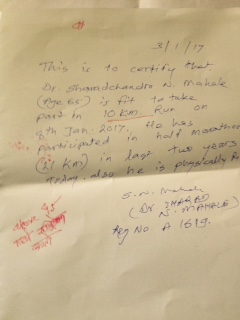 3/1/17
This is to certify that
Dr. Sharadchandra N. Mahale
(Age 65) is fit to take
part in 10 km. Run on
8th Jan. 2017. He has
participated in half marathon
(21 km) in last two years
today also he is physically
S. N. Mahale
(Dr SHARAD
N. MAHALE)
Reg No A 1619.